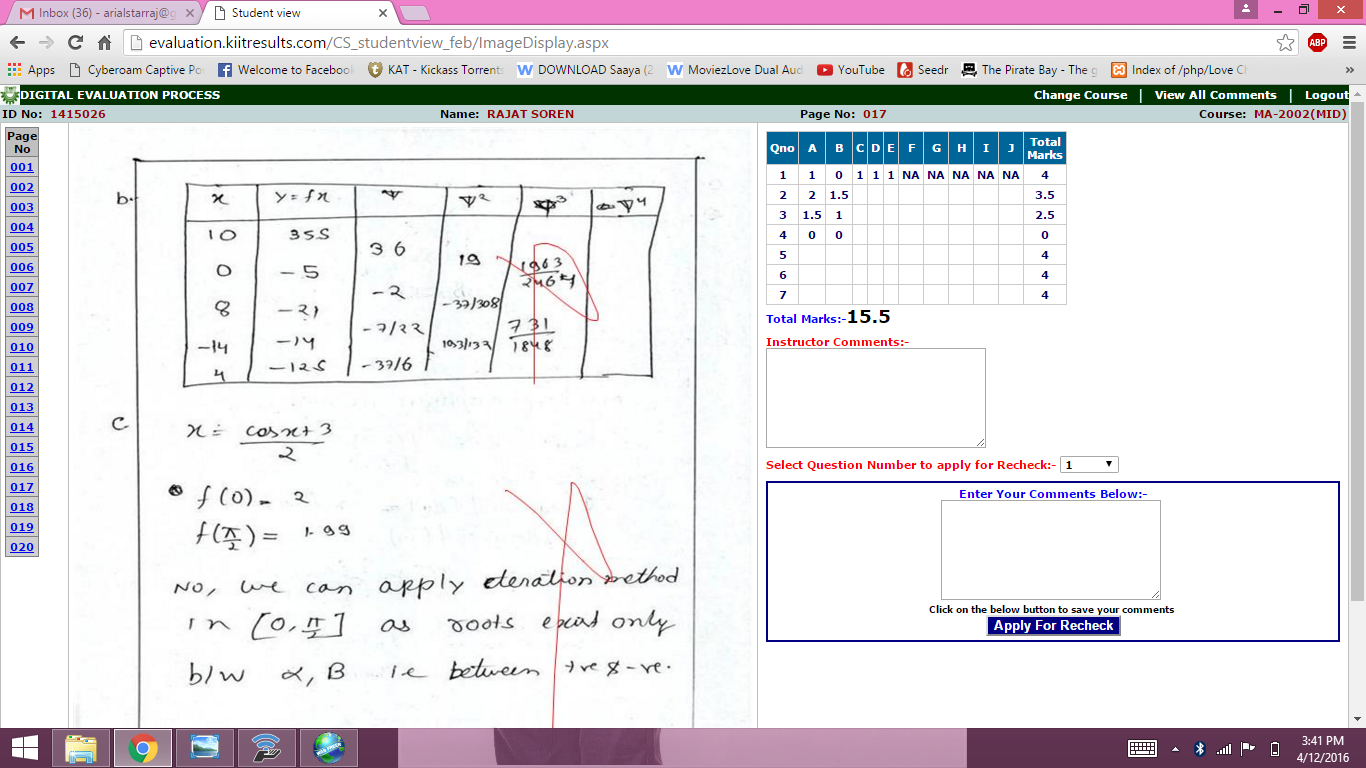 Inbox (36) - arialstarraj@g
Student view
evaluation.kiitresults.com/CS_studentview_feb/ImageDisplay.aspx
Apps Cyberoam Captive Po Welcome to Facebook KAT - Kickass Torrents DOWNLOAD Saaya (2 MoviezLove Dual Aud YouTube Seedr The Pirate Bay - The g Index of /php/Love Ch »
DIGITAL EVALUATION PROCESS Change Course | View All Comments | Logout
ID No: 1415026 Name: RAJAT SOREN Page No: 017 Course: MA-2002(MID)
Page
No
001
002
003
004
005
006
007
008
009
010
011
012
013
014
015
016
017
018
019
020
b.
x y = fx ∇ ∇² ∇³ ∇⁴
10 355
36
0 -5 19 1963
-2 246
8 -21 -37/308
-7/22 731
-14 -14 1848
4 -125 -37/6
C x = cosx+3
2
f(0) = 2
f(π/2) = 1.99
No, we can apply iteration method
in [0, π/2] as roots exist only
b/w α, B ie between +ve & -ve.
Qno A B C D E F G H I J Total Marks
1 1 0 1 1 1 NA NA NA NA NA 4
2 2 1.5 3.5
3 1.5 1 2.5
4 0 0 0
5 4
6 4
7 4
Total Marks:-15.5
Instructor Comments:-
Select Question Number to apply for Recheck:- 1
Enter Your Comments Below:-
Click on the below button to save your comments
Apply For Recheck
3:41 PM
4/12/2016